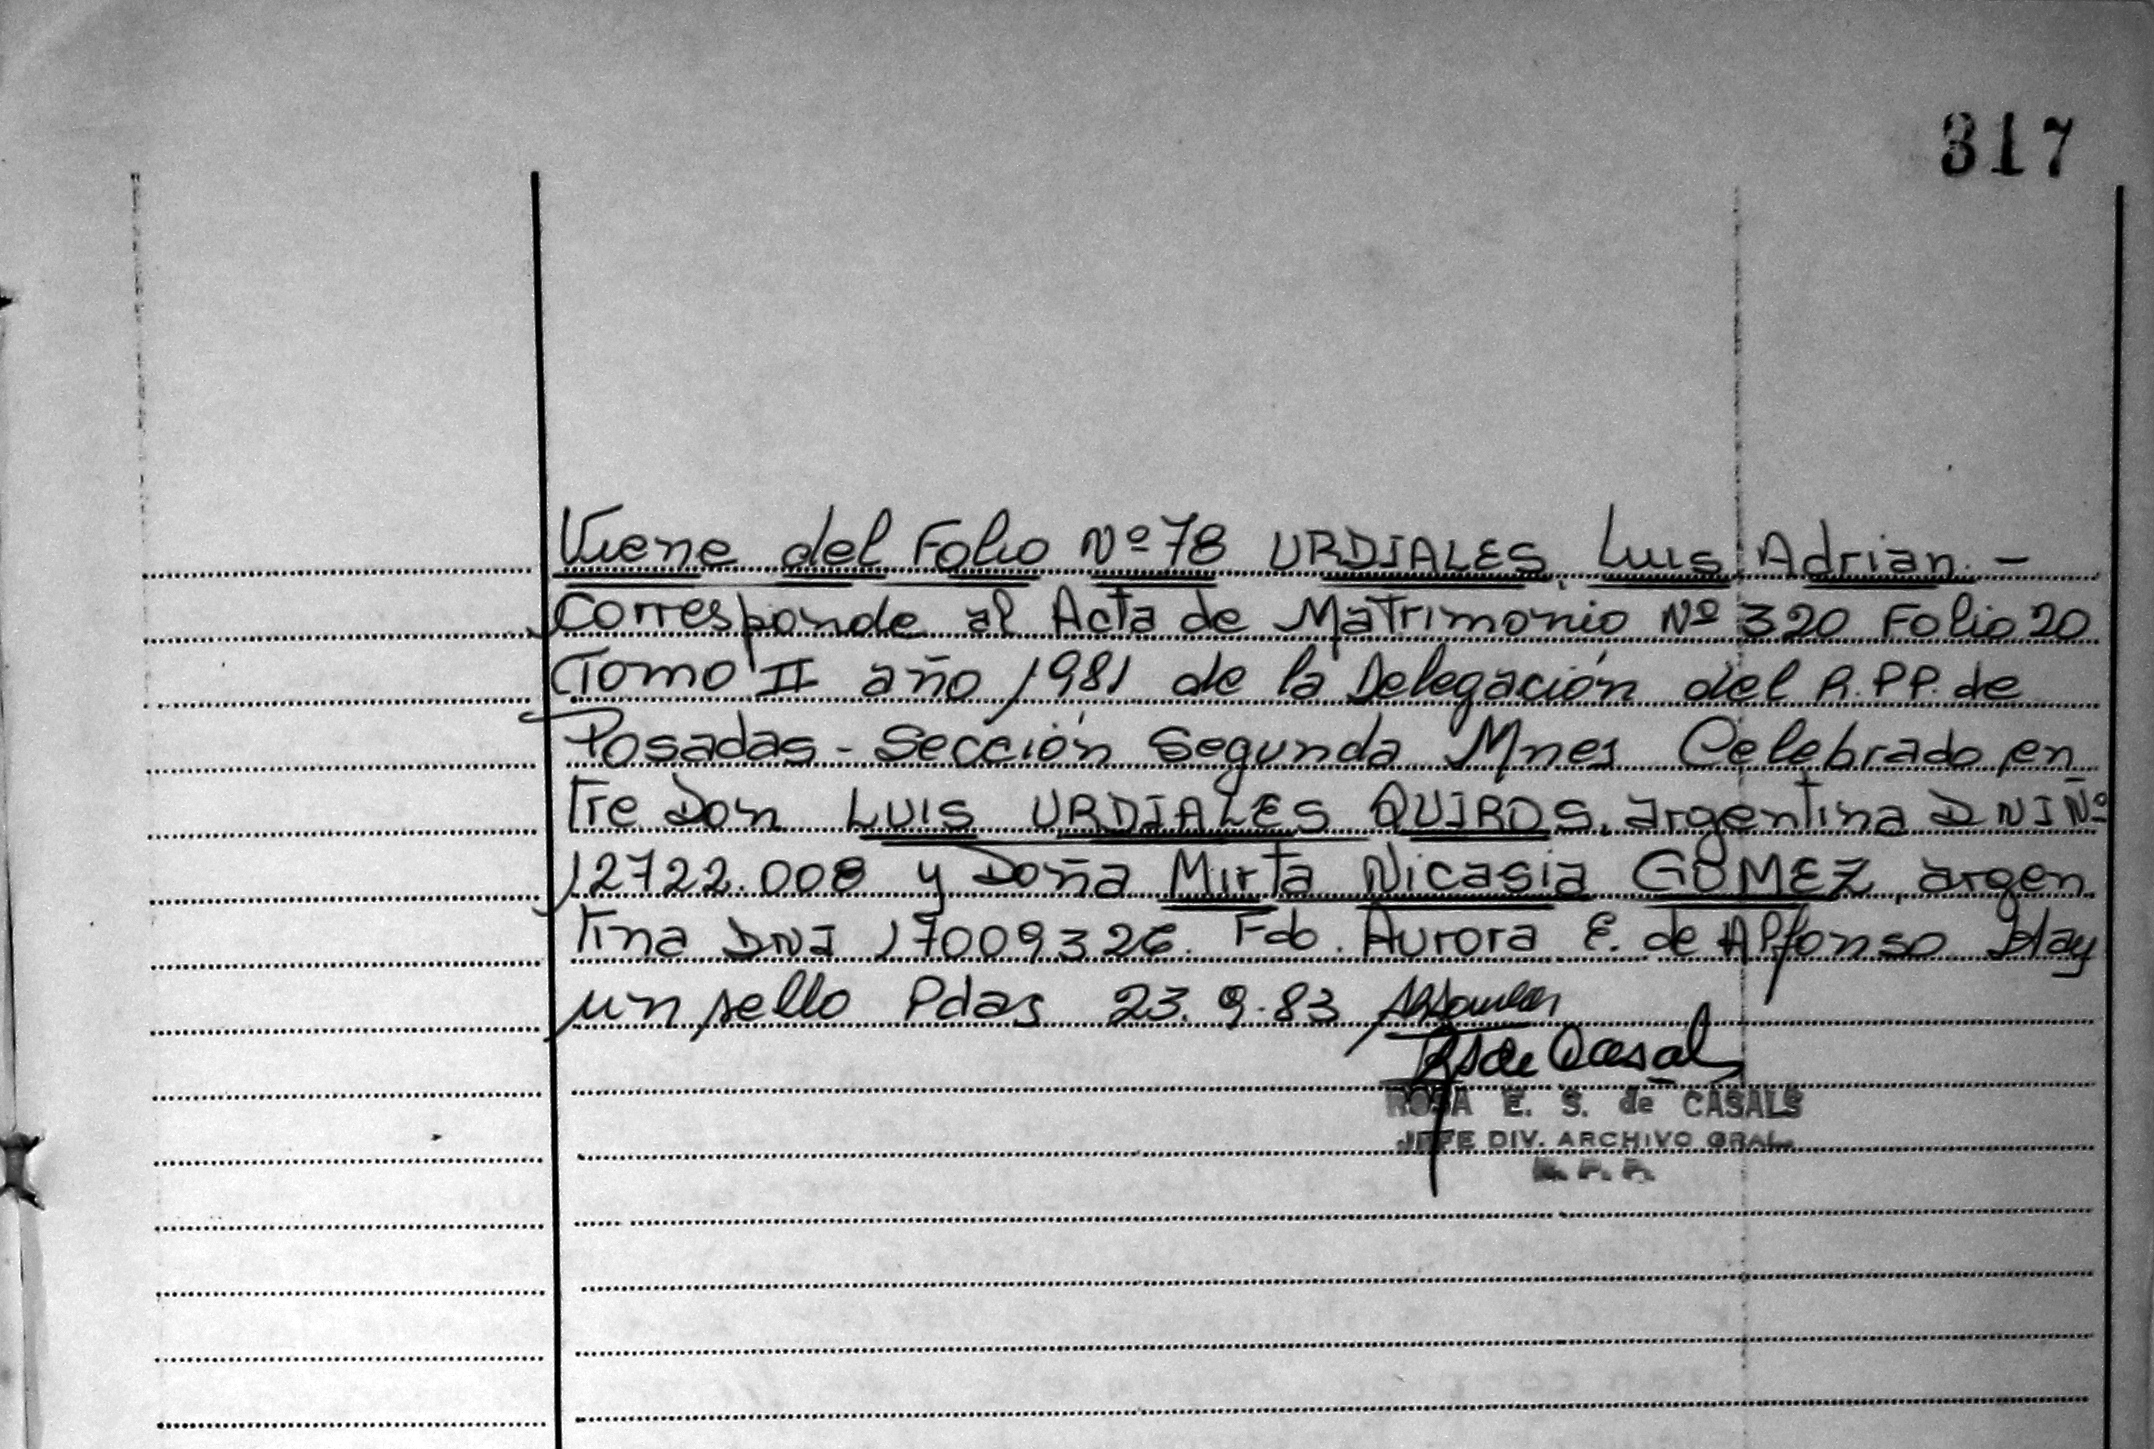 317
Viene del Folio Nº 78 URDIALES, Luis Adrian. -
Corresponde al Acta de Matrimonio Nº 320 Folio 20
Tomo II año 1981 de la Delegación del R.P.P. de
Posadas - Sección Segunda Mnes Celebrado en
tre Don LUIS URDIALES QUIROS, argentina DNI Nº
12722.008 y Doña Mirta Nicasia GOMEZ, argen
tina DNI 17009326. Fdo. Aurora E. de Alfonso Hay
un sello Pdas 23.9.83
R S de Casals
ROSA E. S. de CASALS
JEFE DIV. ARCHIVO GRAL.
R. P. P.